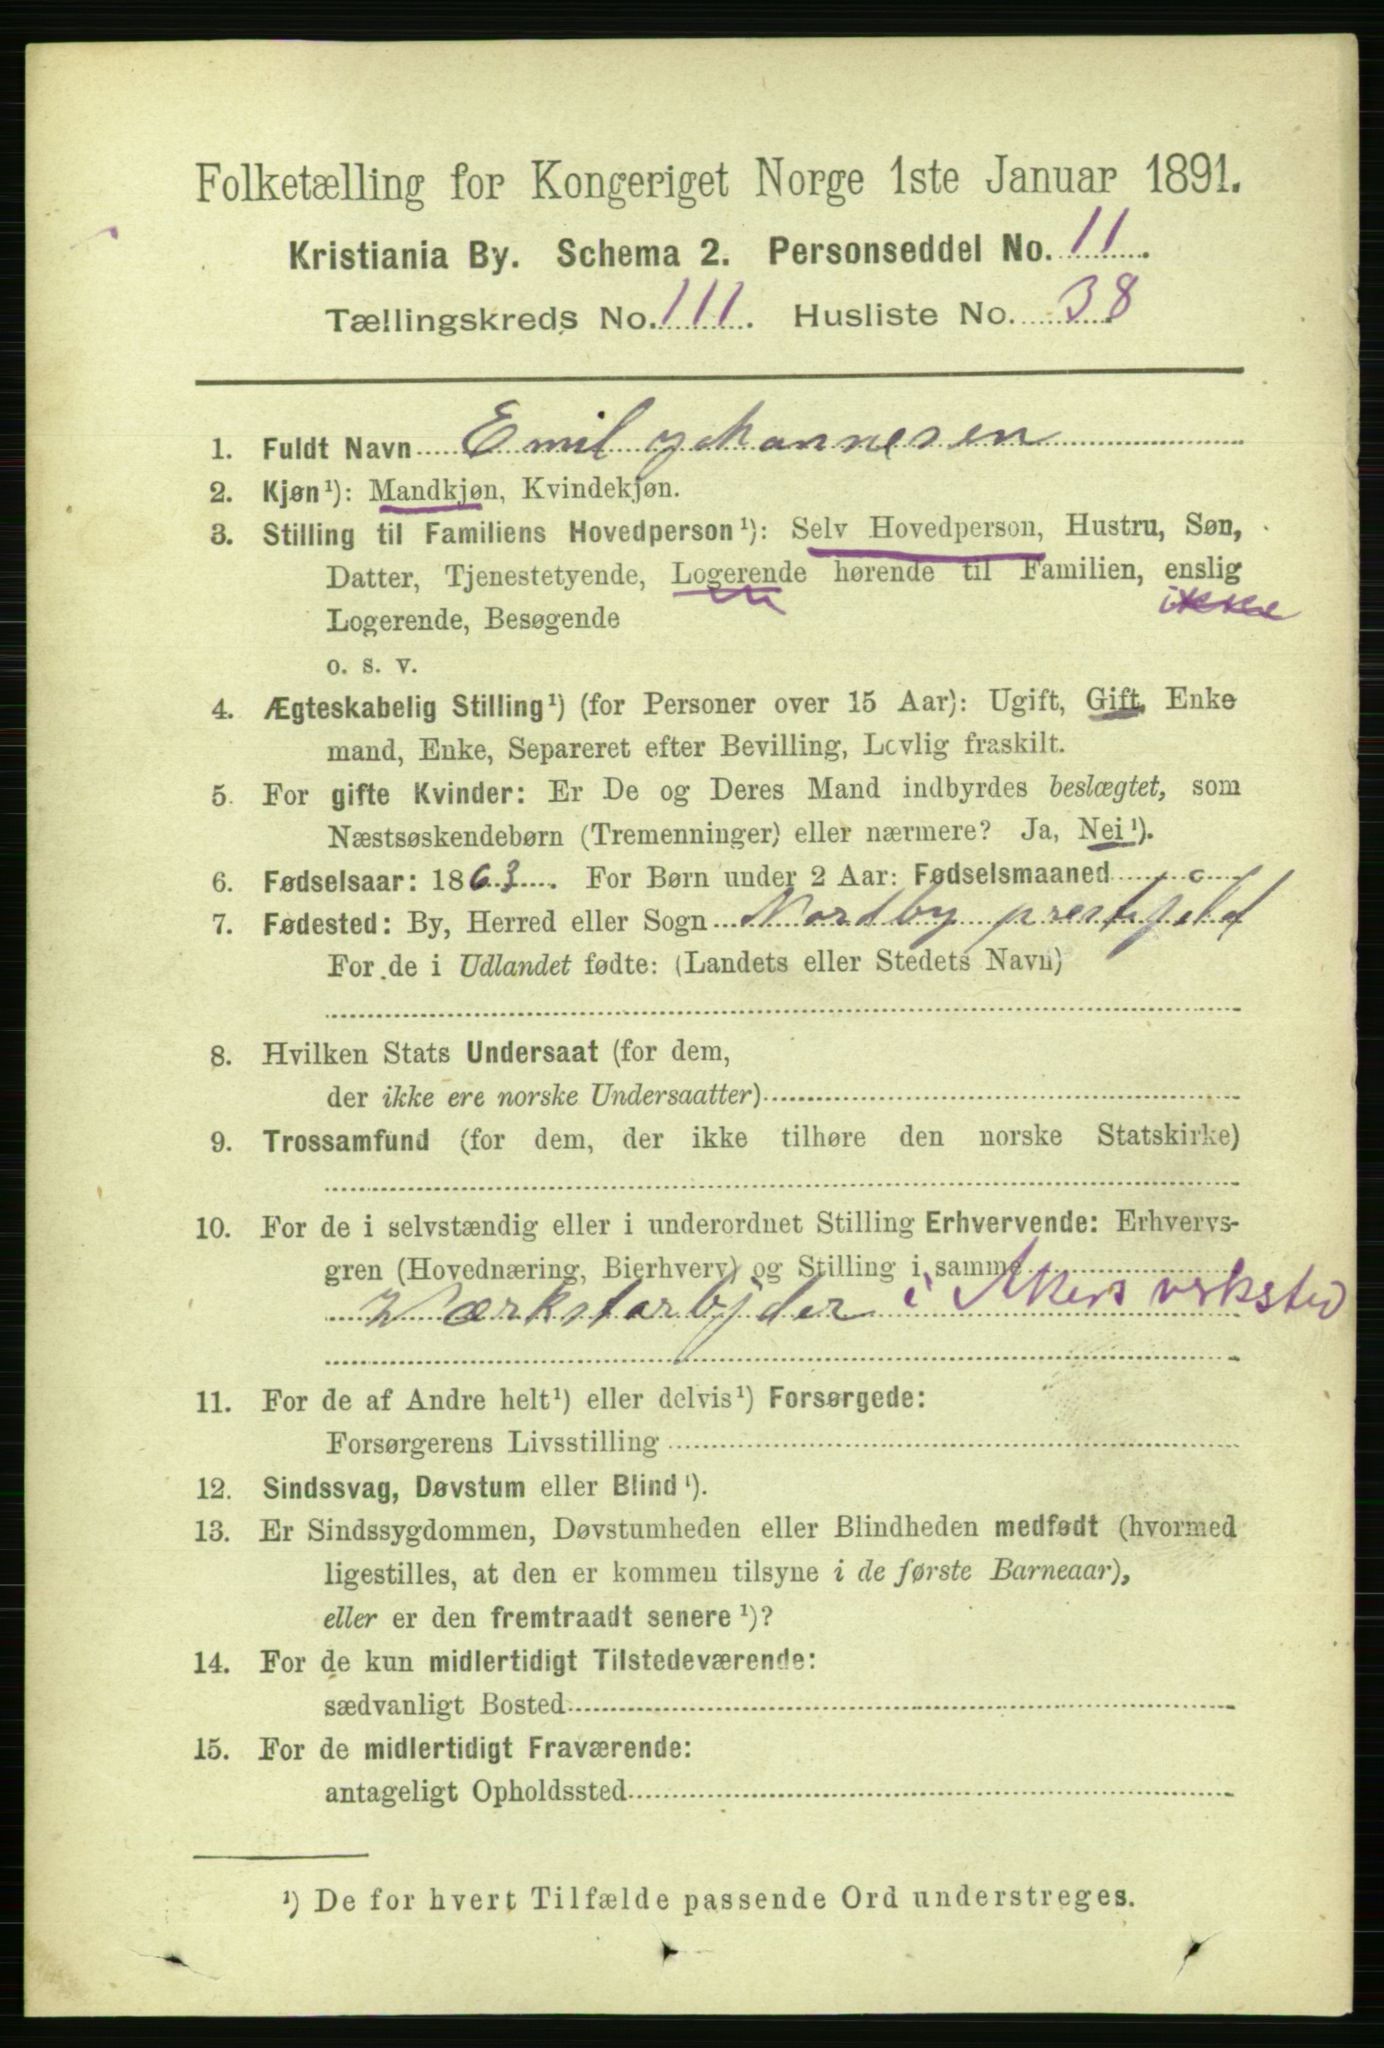 Folketælling for Kongeriget Norge 1ste Januar 1891.
Kristiania By. Schema 2. Personseddel No. 11.
Tællingskreds No. 111. Husliste No. 38
1. Fuldt Navn Emil Johannesen
2. Kjøn¹): Mandkjøn, Kvindekjøn.
3. Stilling til Familiens Hovedperson¹): Selv Hovedperson, Hustru, Søn,
Datter, Tjenestetyende, Logerende hørende til Familien, enslig
ikke
Logerende, Besøgende
o. s. v.
4. Ægteskabelig Stilling¹) (for Personer over 15 Aar): Ugift, Gift, Enke
mand, Enke, Separeret efter Bevilling, Lovlig fraskilt.
5. For gifte Kvinder: Er De og Deres Mand indbyrdes beslægtet, som
Næstsøskendebørn (Tremenninger) eller nærmere? Ja, Nei¹).
6. Fødselsaar: 1863. For Børn under 2 Aar: Fødselsmaaned
7. Fødested: By, Herred eller Sogn Nordby prestejeld
For de i Udlandet fødte: (Landets eller Stedets Navn)
8. Hvilken Stats Undersaat (for dem,
der ikke ere norske Undersaatter)
9. Trossamfund (for dem, der ikke tilhøre den norske Statskirke)
10. For de i selvstændig eller i underordnet Stilling Erhvervende: Erhvervs-
gren (Hovednæring, Bierhverv) og Stilling i samme
Værkstarbjder i Akers verksted
11. For de af Andre helt¹) eller delvis¹) Forsørgede:
Forsørgerens Livsstilling
12. Sindssvag, Døvstum eller Blind¹).
13. Er Sindssygdommen, Døvstumheden eller Blindheden medfødt (hvormed
ligestilles, at den er kommen tilsyne i de første Barneaar),
eller er den fremtraadt senere¹)?
14. For de kun midlertidigt Tilstedeværende:
sædvanligt Bosted
15. For de midlertidigt Fraværende:
antageligt Opholdssted
¹) De for hvert Tilfælde passende Ord understreges.